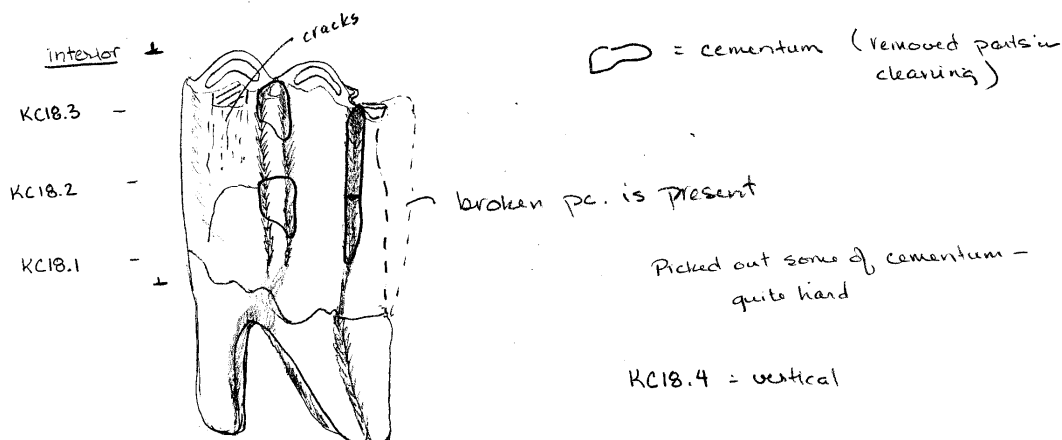 cracks
interior
= cementum (removed parts in
cleaning)
KC18.3 -
KC18.2 -
broken pc. is present
KC18.1 -
Picked out some of cementum -
quite hard
KC18.4 = vertical